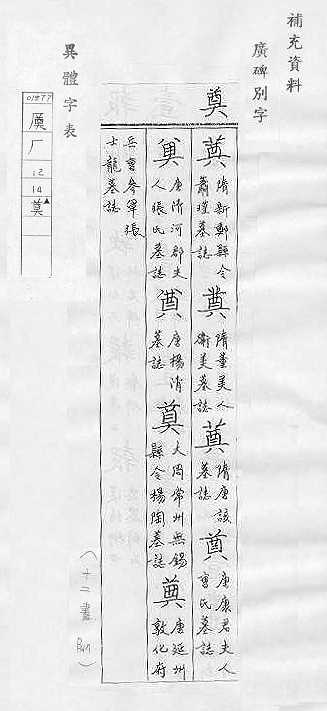 補充資料
廣碑別字
奠
隋新鄭縣令蕭瑾墓誌
奠
隋董美人衛美墓誌
奠
隋唐該墓誌
奠
唐康君夫人曹氏墓誌
奠
唐濟河郡夫人張氏墓誌
奠
唐楊清墓誌
奠
大周常州無錫縣令楊陶墓誌
奠
唐延州敦化府
兵曹參軍張士龍墓誌
(十二畫
異體字表
厂
12
14
奠